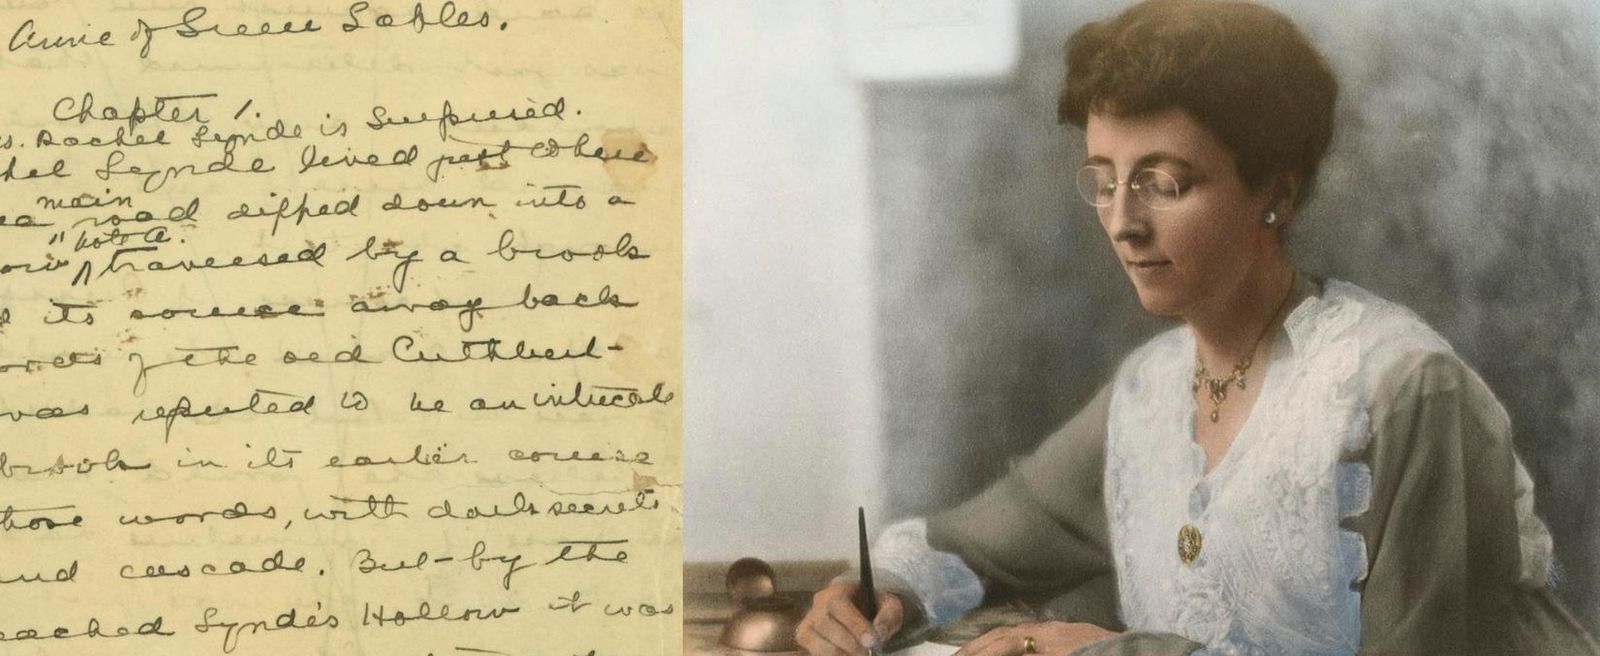 Anne of Green Gables.
Chapter 1.
s. Rachel Lynde is Surprised.
hel Lynde lived just where
ea main road dipped down into a
"Note A".
traversed by a brook
d its source away back
of the old Cuthbert-
was reputed to be an intricate
brook in its earlier course
those words, with dark secrets
and cascade. But by the
eached Lynde's Hollow it was